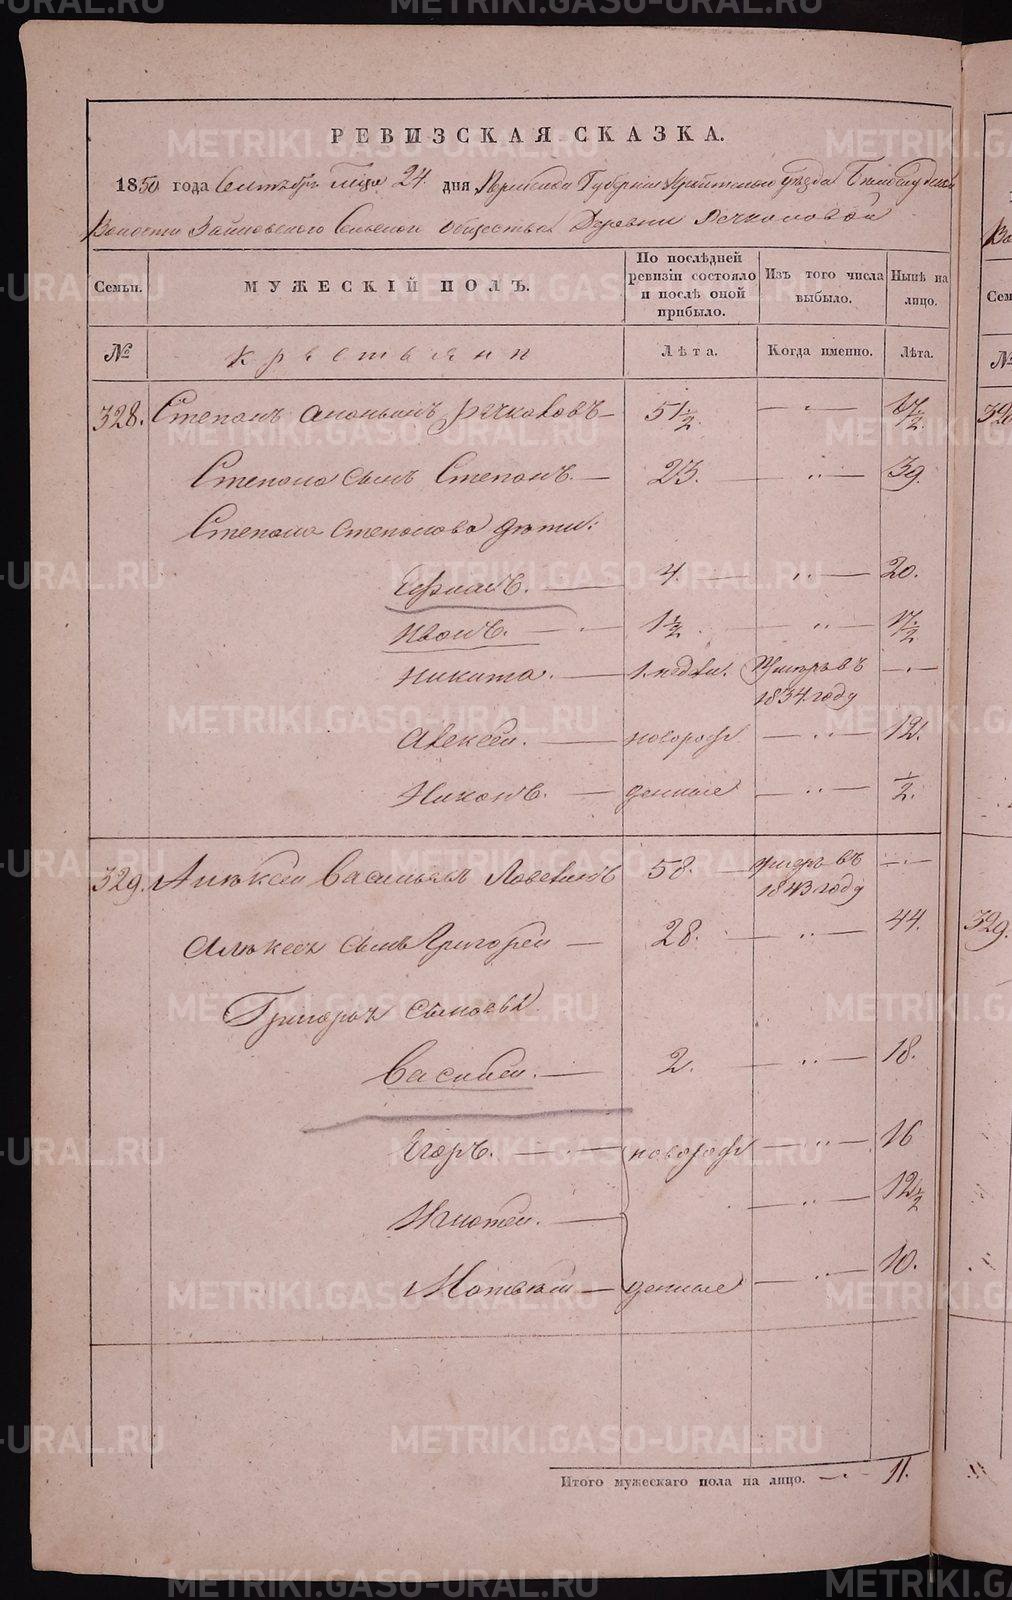 РЕВИЗСКАЯ СКАЗКА.
1850 года Сентября м-ца 24 дня Пермской Губернии Ирбитского уезда Белослудской
Волости Зайковского Сельского общества Деревни Речкаловой
Семьи. МУЖЕСКІЙ ПОЛЪ. По послѣдней ревизіи состояло и послѣ оной прибыло. Изъ того числа выбыло. Нынѣ на лицо.
№ крестьяне Лѣта. Когда именно. Лѣта.
328. Степанъ Ананьинъ Речкаловъ 51½. 〃 67½.
Степана сынъ Степанъ. 23. 〃 39.
Степана Степанова дѣти:
4. 〃 20.
Иванъ. 1½. 〃 17½
Никита. 1. недѣли. Умеръ въ 1834 году
Алексѣй. новорож 〃 12.
Никонъ. денные 〃 ½.
329. Алексѣй Васильевъ 58. умеръ въ 1843 году
Алексѣя сынъ Григорей 28. 〃 44.
Григорья сыновья
Василей. 2. 〃 18.
Егоръ. новорож 〃 16
Игнатей. 〃 12½
Матвѣй денные 〃 10.
Итого мужескаго пола на лицо. 11.
METRIKI.GASO-URAL.RU